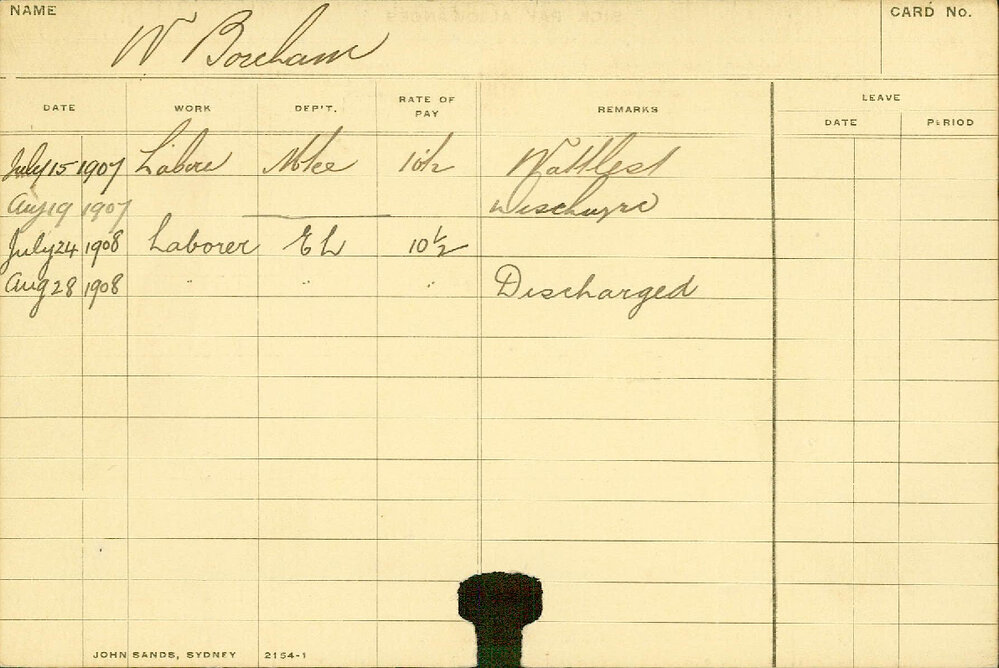 NAME
W Boreham
CARD No.
DATE WORK DEP'T. RATE OF PAY REMARKS LEAVE
DATE PERIOD
July 15 1907 Labore Mkee 10½ Wattlest
Aug 19 1907 Discharge
July 24 1908 Laborer E L 10½
Aug 28 1908 " " " Discharged
JOHN SANDS, SYDNEY 2154-1